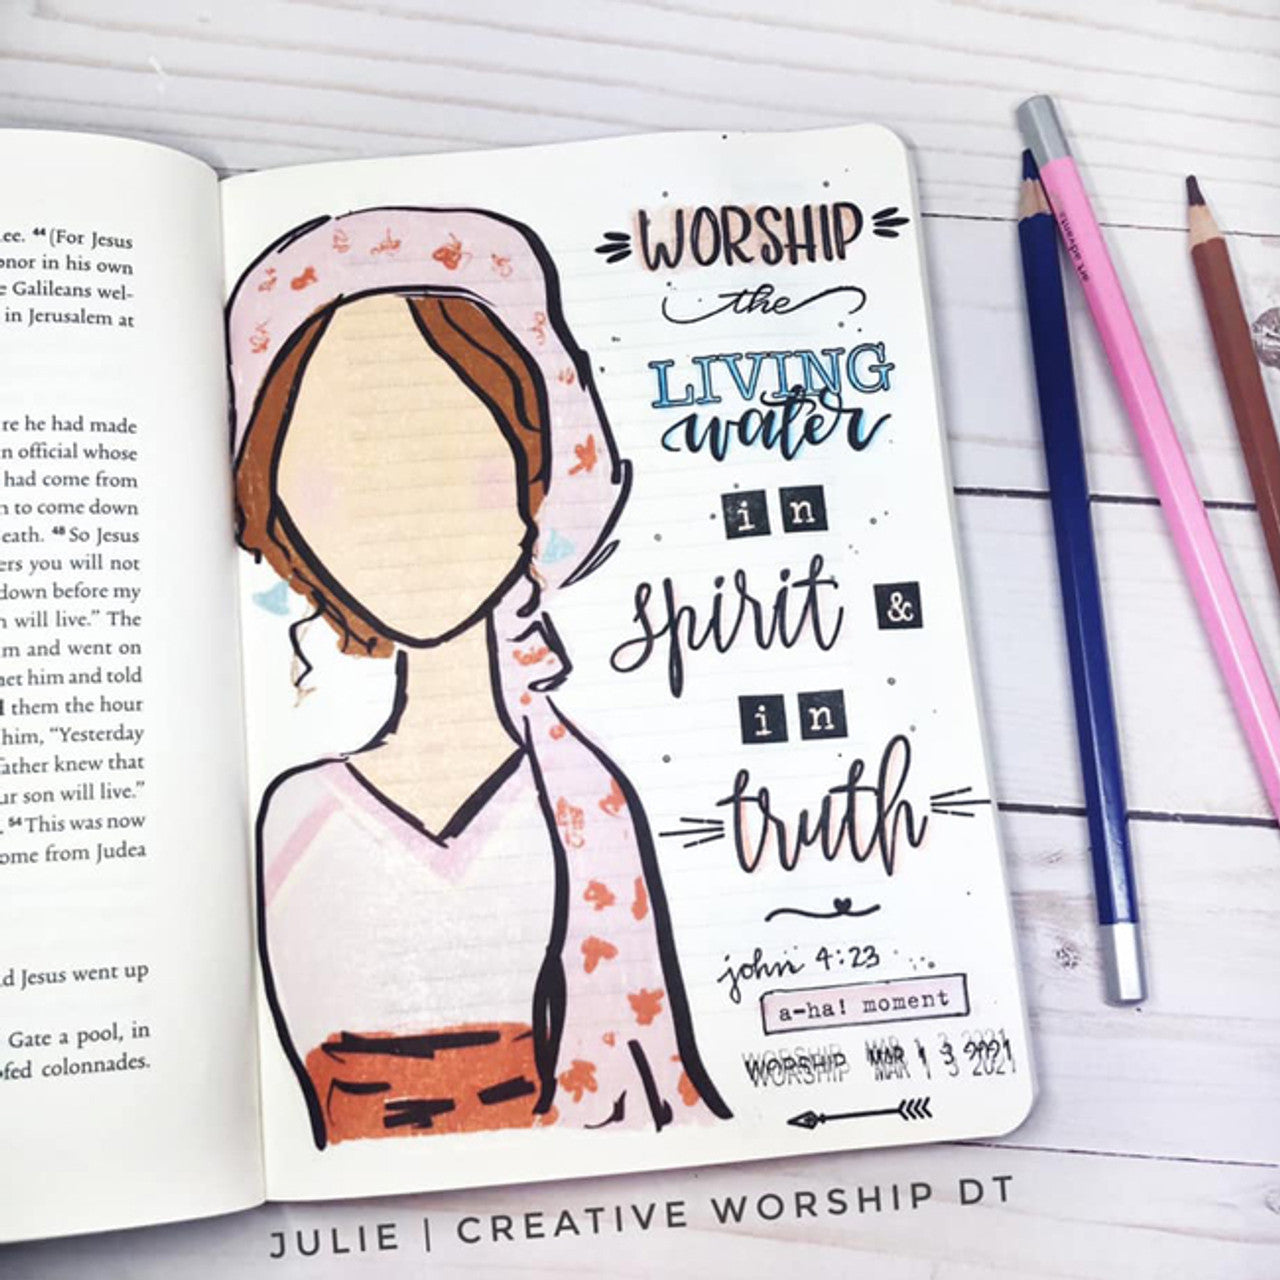 ee. 44 (For Jesus
onor in his own
e Galileans wel-
in Jerusalem at
re he had made
n official whose
had come from
n to come down
eath. 48 So Jesus
ers you will not
down before my
will live.” The
m and went on
net him and told
them the hour
him, “Yesterday
father knew that
ur son will live.”
54 This was now
ome from Judea
d Jesus went up
Gate a pool, in
fed colonnades.
WORSHIP
the
LIVING
water
in
spirit &
in
truth
john 4:23
a-ha! moment
WORSHIP MAR 13 2021
JULIE | CREATIVE WORSHIP DT